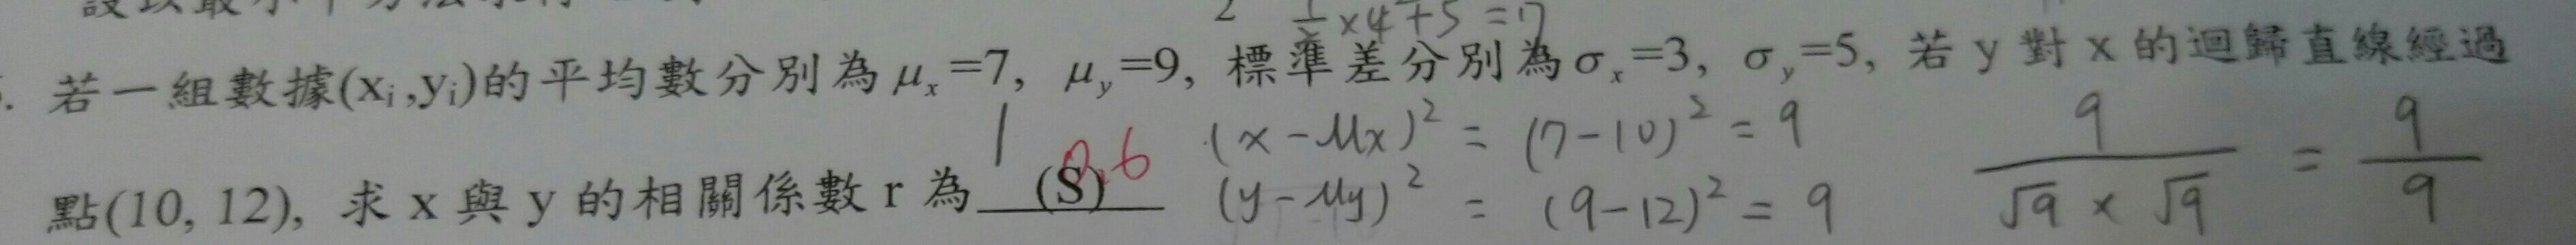 2 ½×4+5=7
若一組數據(xᵢ,yᵢ)的平均數分別為μₓ=7, μᵧ=9, 標準差分別為σₓ=3, σᵧ=5, 若 y 對 x 的迴歸直線經過
點(10, 12), 求 x 與 y 的相關係數 r 為 (S)
1
0.6
(x-Mx)² = (7-10)² = 9
(y-My)² = (9-12)² = 9
9/(√9 × √9) = 9/9